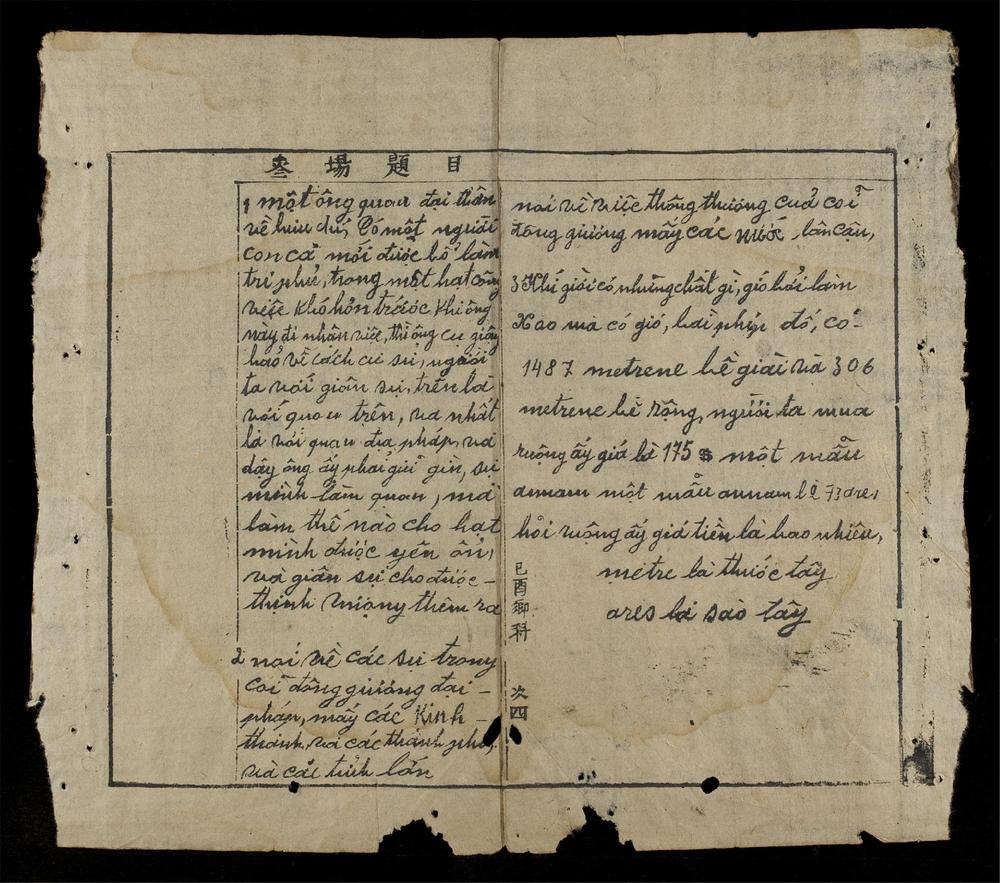 叄場題目
1 một ông quan đại thần
về hưu chí, Có một người
con cả mới được bổ làm
tri phủ, trong một hạt công
việc khó hơn trước khi ông
này đi nhận việc, thì ông cụ giậy
bảo về cách cư sử, người
ta với giân sự, trên là
với quan trên, và nhất
là với quan đại pháp, và
dậy ông ấy phải giữ gìn, sự
mình làm quan, mà
làm thế nào cho hạt
mình được yên ổn,
và giân sự cho được -
thịnh vượng thêm ra
2 nói về các sứ trong
cõi đông giương đại -
pháp, mấy các Kinh -
thành, và các thành phố,
và các tỉnh lớn
己酉鄉科
次四
nói về việc thông thương cuả cõi
đông giương mấy các nước lân cận,
3 Khí giời có những chất gì, gió bởi làm
sao mà có gió, bài phép đố, có -
1487 metrene bề giài và 306
metrene bề rộng, người ta mua
ruộng ấy giá là 175 $ một mẫu
annam một mẫu annam là 73 ares
hỏi ruộng ấy giá tiền là bao nhiêu,
métre là thước tây
ares là sào tây